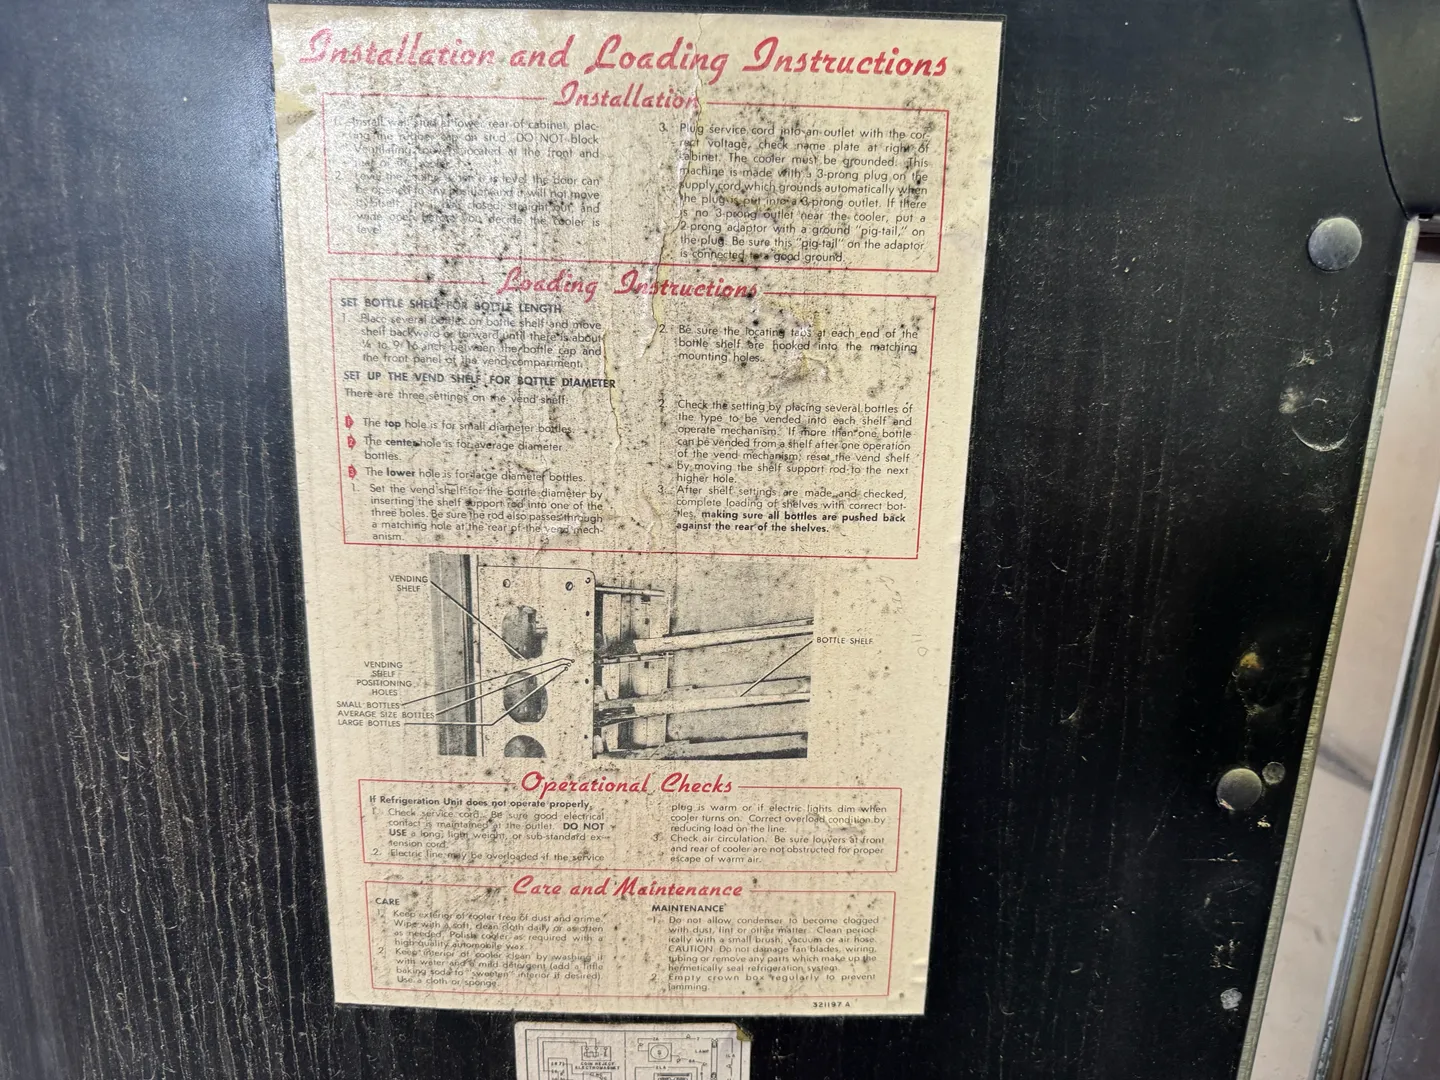 Installation and Loading Instructions
Installation
1. Install wall stud at lower rear of cabinet, plac-
ing the rubber cap on stud. DO NOT block
ventilating louvers located at the front and
2. Level the cooler. When it is level the door can
be opened to any position and it will not move
by itself. Try it closed, straight out, and
wide open before you decide the cooler is
level.
3. Plug service cord into an outlet with the cor-
rect voltage, check name plate at right of
cabinet. The cooler must be grounded. This
machine is made with a 3-prong plug on the
supply cord which grounds automatically when
the plug is put into a 3-prong outlet. If there
is no 3-prong outlet near the cooler, put a
2-prong adaptor with a ground "pig-tail," on
the plug. Be sure this "pig-tail" on the adaptor
is connected to a good ground.
Loading Instructions
SET BOTTLE SHELF FOR BOTTLE LENGTH
1. Place several bottles on bottle shelf and move
shelf backward or forward until there is about
to 9/16 inch between the bottle cap and
the front panel of the vend compartment.
2. Be sure the locating tabs at each end of the
bottle shelf are hooked into the matching
mounting holes.
SET UP THE VEND SHELF FOR BOTTLE DIAMETER
There are three settings on the vend shelf:
1 The top hole is for small diameter bottles.
2 The center hole is for average diameter
bottles.
3 The lower hole is for large diameter bottles.
1. Set the vend shelf for the bottle diameter by
inserting the shelf support rod into one of the
three holes. Be sure the rod also passes through
a matching hole at the rear of the vend mech-
anism.
2. Check the setting by placing several bottles of
the type to be vended into each shelf and
operate mechanism. If more than one bottle
can be vended from a shelf after one operation
of the vend mechanism, reset the vend shelf
by moving the shelf support rod to the next
higher hole.
3. After shelf settings are made and checked,
complete loading of shelves with correct bot-
tles, making sure all bottles are pushed back
against the rear of the shelves.
VENDING
SHELF
VENDING
SHELF
POSITIONING
HOLES
SMALL BOTTLES
AVERAGE SIZE BOTTLES
LARGE BOTTLES
BOTTLE SHELF
Operational Checks
If Refrigeration Unit does not operate properly,
1. Check service cord. Be sure good electrical
contact is maintained at the outlet. DO NOT
USE a long, light weight, or sub-standard ex-
tension cord.
2. Electric line may be overloaded if the service
plug is warm or if electric lights dim when
cooler turns on. Correct overload condition by
reducing load on the line.
3. Check air circulation. Be sure louvers at front
and rear of cooler are not obstructed for proper
escape of warm air.
Care and Maintenance
CARE
1. Keep exterior of cooler free of dust and grime.
Wipe with a soft, clean cloth daily or as often
as needed. Polish cooler as required with a
high quality automobile wax.
2. Keep interior of cooler clean by washing it
with water and a mild detergent (add a little
baking soda to "sweeten" interior if desired).
Use a cloth or sponge.
MAINTENANCE
1. Do not allow condenser to become clogged
with dust, lint or other matter. Clean period-
ically with a small brush, vacuum or air hose.
CAUTION: Do not damage fan blades, wiring,
tubing or remove any parts which make up the
hermetically seal refrigeration system.
2. Empty crown box regularly to prevent
jamming.
321197 A
COIN REJECT
ELECTROMAGNET
LAMP